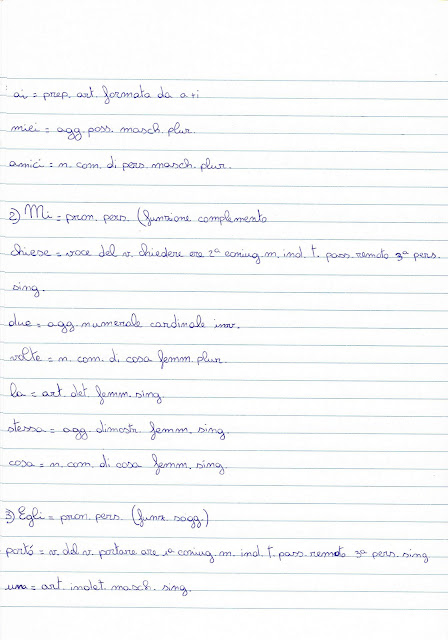 ai = prep. art. formata da a+i
miei = agg. poss. masch. plur.
amici = n. com. di pers. masch. plur.
2) Mi = pron. pers. (funzione complemento
chiese = voce del v. chiedere ere 2ª coniug. m. ind. t. pass. remoto 3ª pers.
sing.
due = agg. numerale cardinale inv.
volte = n. com. di cosa femm. plur.
la = art. det. femm. sing.
stessa = agg. dimostr. femm. sing.
cosa = n. com. di cosa femm. sing.
3) Egli = pron. pers. (funz. sogg.)
portò = v. del v. portare are 1ª coniug. m. ind. t. pass. remoto 3ª pers. sing
un = art. indet. masch. sing.